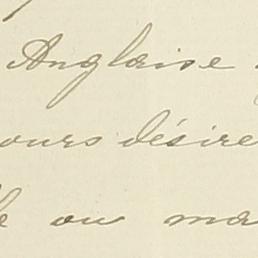 Anglaise
ours désire
ou ma